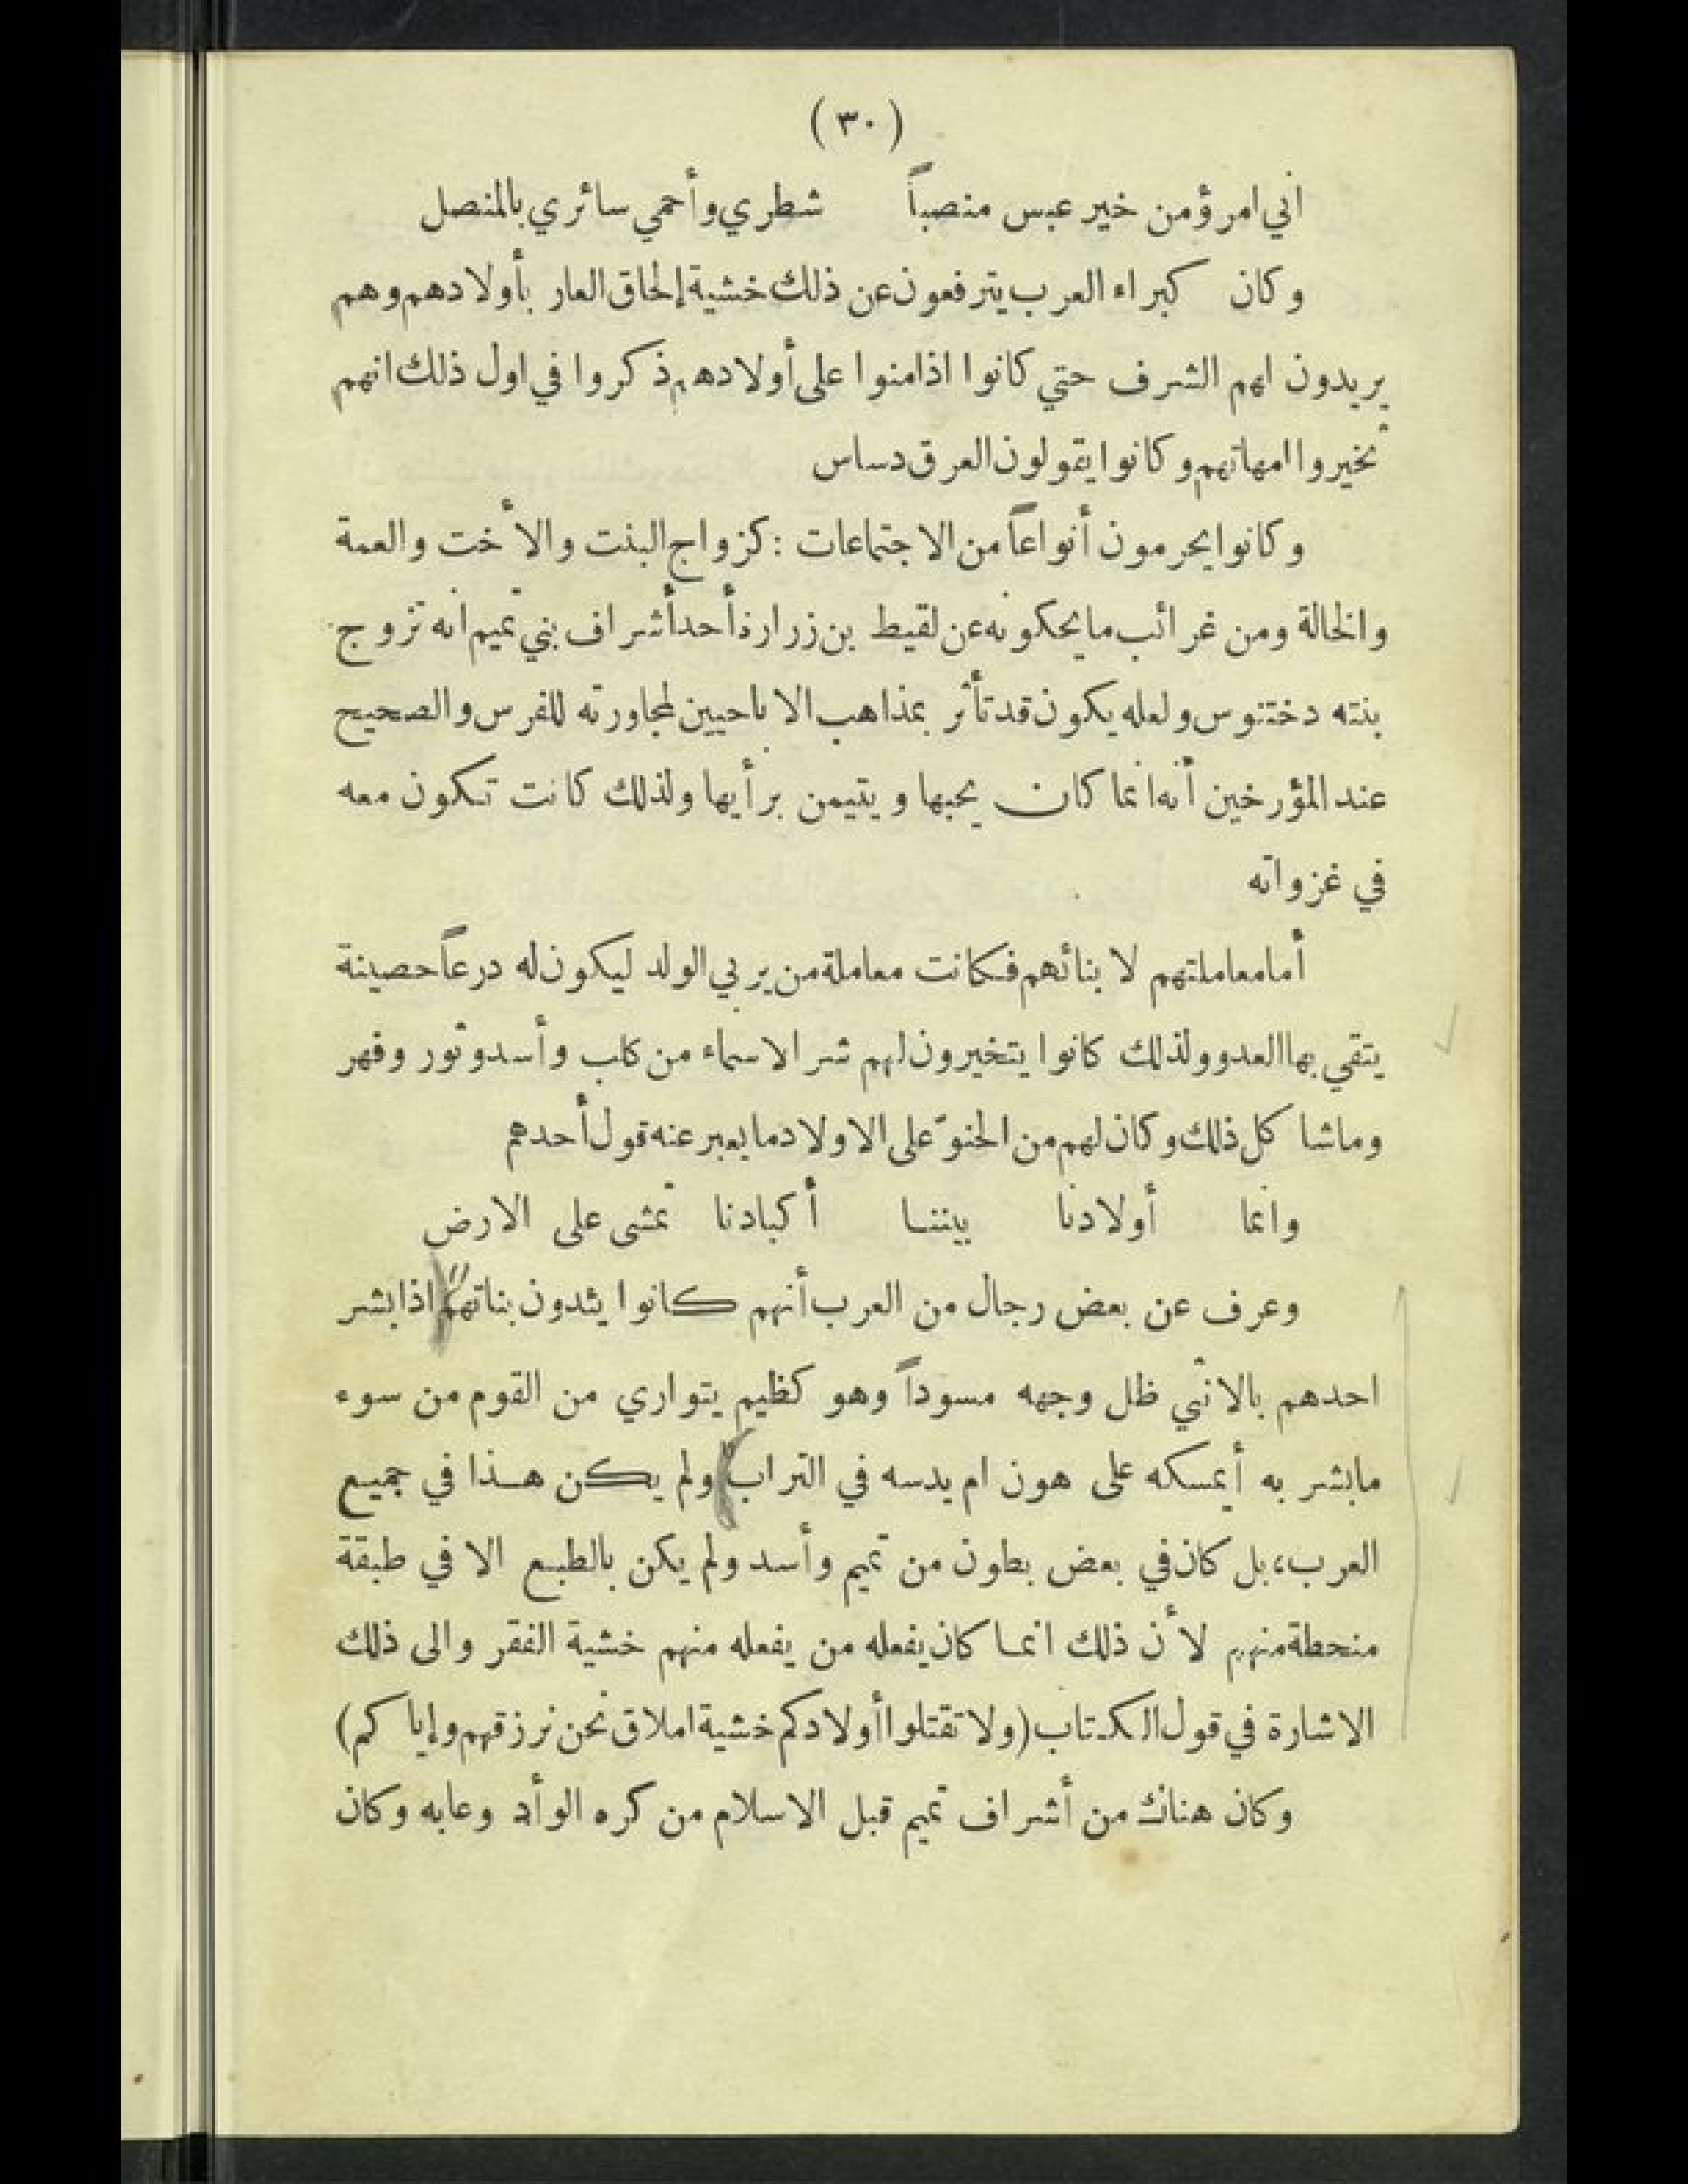 (٣٠)
اني امرؤ من خير عبس منصباً شطري وأحمي سائري بالمنصل
وكان كبراء العرب يترفعون عن ذلك خشية إلحاق العار بأولادهم وهم
يريدون لهم الشرف حتي كانوا اذا منوا على أولادهم ذكروا في اول ذلك انهم
تخيروا امهاتهم وكانوا يقولون العرق دساس
وكانوا يحرمون أنواعاً من الاجتماعات : كزواج البنت والأخت والعمة
والخالة ومن غرائب ما يحكونه عن لقيط بن زرارة أحد أشراف بني تميم انه تزوج
بنته دختنوس ولعله يكون قد تأثر بمذاهب الاباحيين لمجاورته للفرس والصحيح
عند المؤرخين أنه انما كان يحبها ويتيمن برأيها ولذلك كانت تكون معه
في غزواته
أما معاملتهم لابنائهم فكانت معاملة من يربي الولد ليكون له درعاً حصينة
يتقي بها العدو ولذلك كانوا يتخيرون لهم شر الاسماء من كلب وأسد وثور وفهر
وماشا كل ذلك وكان لهم من الحنوّ على الاولاد ما يعبر عنه قول أحدهم
وانما أولادنا بيننا أكبادنا تمشى على الارض
وعرف عن بعض رجال من العرب أنهم كانوا يئدون بناتهم اذا بشر
احدهم بالانثي ظل وجهه مسوداً وهو كظيم يتواري من القوم من سوء
ما بشر به أيمسكه على هون ام يدسه في التراب ولم يكن هذا في جميع
العرب؛ بل كان في بعض بطون من تميم وأسد ولم يكن بالطبع الا في طبقة
منحطة منهم لأن ذلك انما كان يفعله من يفعله منهم خشية الفقر والى ذلك
الاشارة في قول الكتاب (ولا تقتلوا أولادكم خشية املاق نحن نرزقهم وإياكم)
وكان هناك من أشراف تميم قبل الاسلام من كره الوأد وعابه وكان